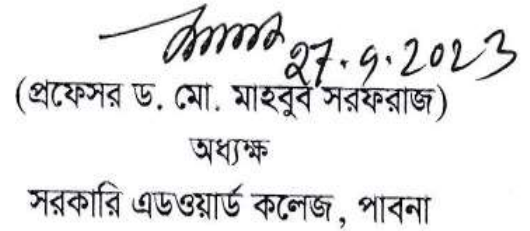 27.9.2023
(প্রফেসর ড. মো. মাহবুব সরফরাজ)
অধ্যক্ষ
সরকারি এডওয়ার্ড কলেজ, পাবনা